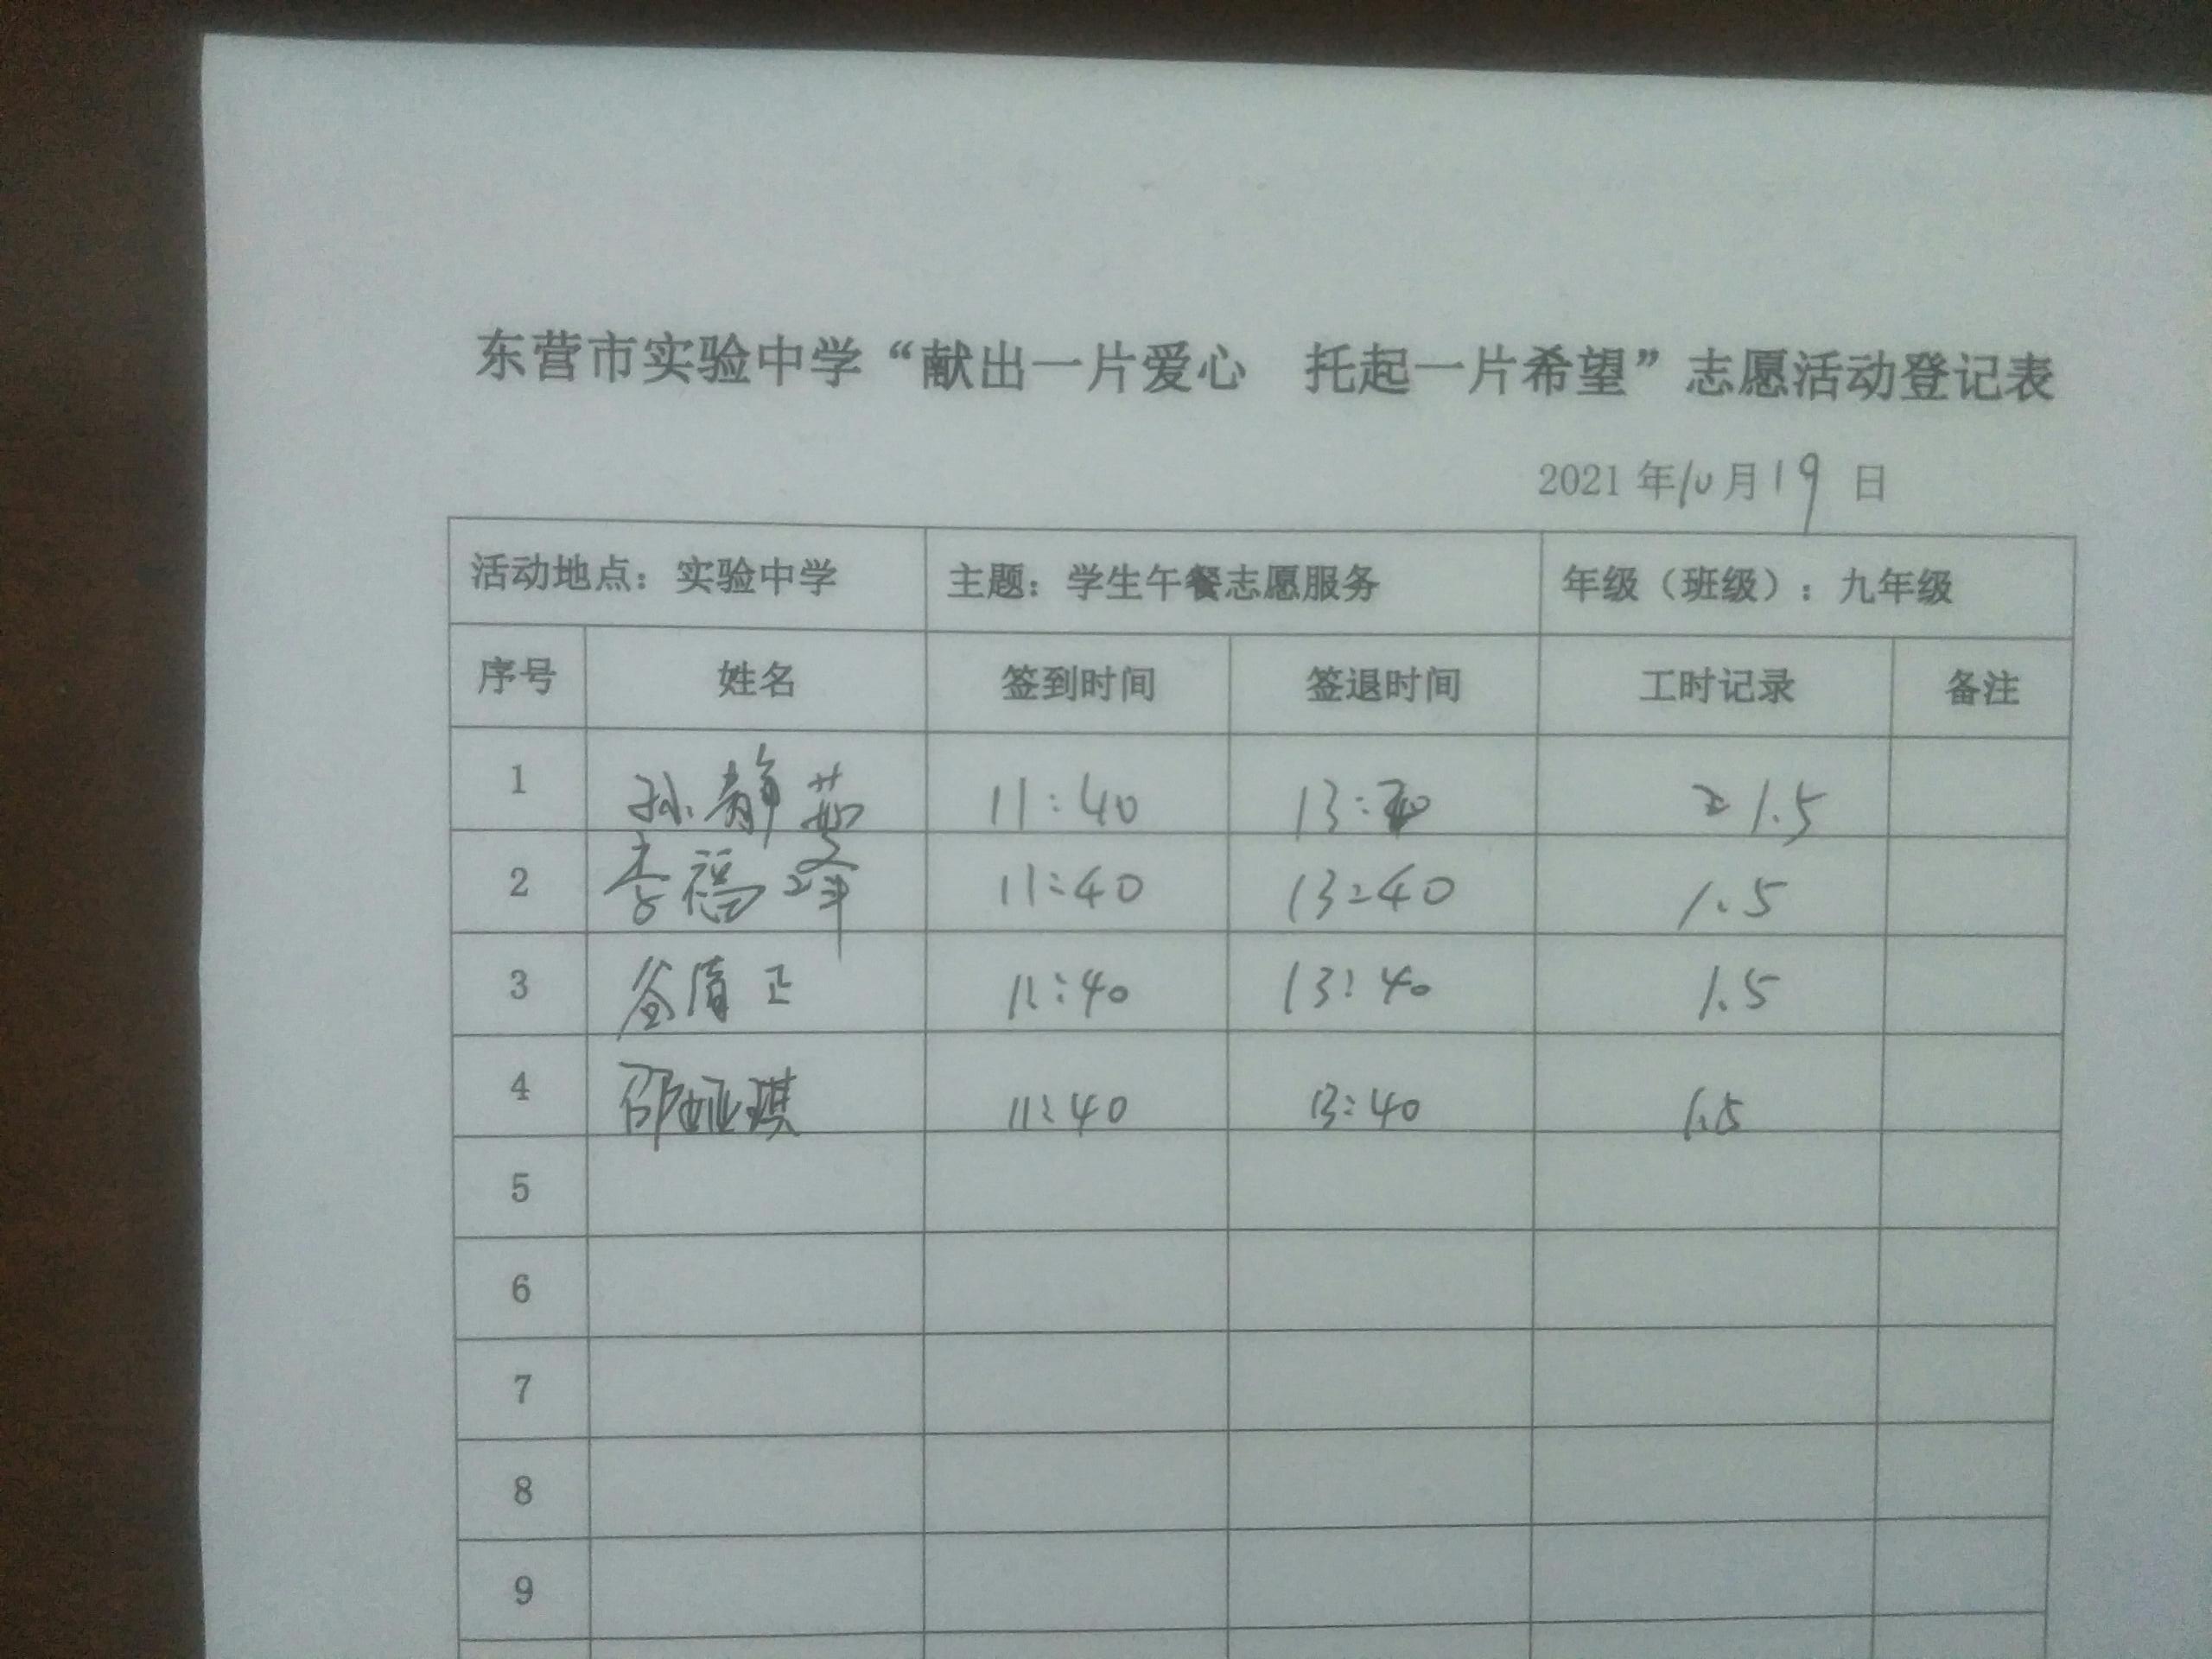 东营市实验中学“献出一片爱心 托起一片希望”志愿活动登记表
2021年10月19日
活动地点：实验中学 主题：学生午餐志愿服务 年级（班级）：九年级
序号 姓名 签到时间 签退时间 工时记录 备注
1 孙静茹 11:40 13: 1.5
2 李福峰 11:40 13:40 1.5
3 正 11:40 13:40 1.5
4 邵娅琪 11:40 13:40 1.5
5
6
7
8
9